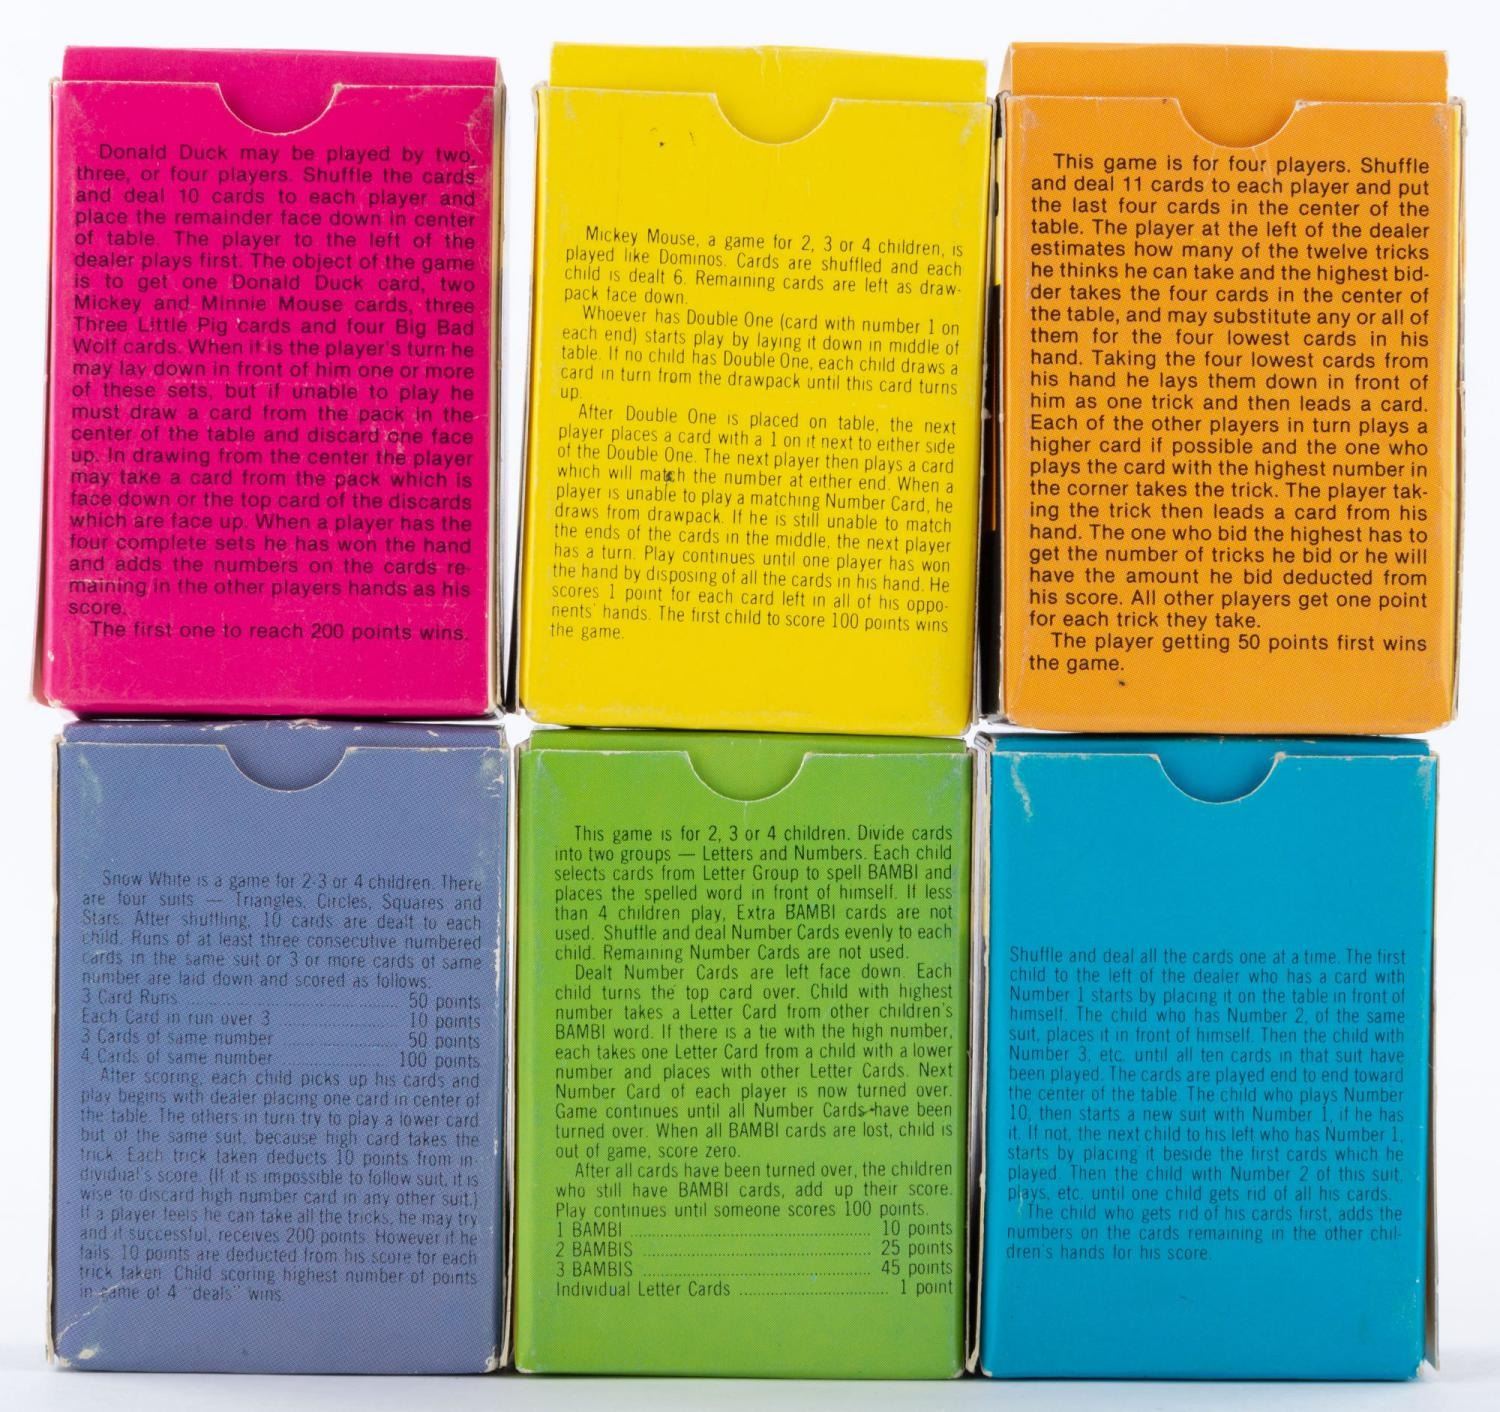 Donald Duck may be played by two,
three, or four players. Shuffle the cards
and deal 10 cards to each player and
place the remainder face down in center
of table. The player to the left of the
dealer plays first. The object of the game
is to get one Donald Duck card, two
Mickey and Minnie Mouse cards, three
Three Little Pig cards and four Big Bad
Wolf cards. When it is the player's turn he
may lay down in front of him one or more
of these sets, but if unable to play he
must draw a card from the pack in the
center of the table and discard one face
up. In drawing from the center the player
may take a card from the pack which is
face down or the top card of the discards
which are face up. When a player has the
four complete sets he has won the hand
and adds the numbers on the cards re-
maining in the other players hands as his
score.
The first one to reach 200 points wins.
Mickey Mouse, a game for 2, 3 or 4 children, is
played like Dominos. Cards are shuffled and each
child is dealt 6. Remaining cards are left as draw-
pack face down.
Whoever has Double One (card with number 1 on
each end) starts play by laying it down in middle of
table. If no child has Double One, each child draws a
card in turn from the drawpack until this card turns
up.
After Double One is placed on table, the next
player places a card with a 1 on it next to either side
of the Double One. The next player then plays a card
which will match the number at either end. When a
player is unable to play a matching Number Card, he
draws from drawpack. If he is still unable to match
the ends of the cards in the middle, the next player
has a turn. Play continues until one player has won
the hand by disposing of all the cards in his hand. He
scores 1 point for each card left in all of his oppo-
nents' hands. The first child to score 100 points wins
the game.
This game is for four players. Shuffle
and deal 11 cards to each player and put
the last four cards in the center of the
table. The player at the left of the dealer
estimates how many of the twelve tricks
he thinks he can take and the highest bid-
der takes the four cards in the center of
the table, and may substitute any or all of
them for the four lowest cards in his
hand. Taking the four lowest cards from
his hand he lays them down in front of
him as one trick and then leads a card.
Each of the other players in turn plays a
higher card if possible and the one who
plays the card with the highest number in
the corner takes the trick. The player tak-
ing the trick then leads a card from his
hand. The one who bid the highest has to
get the number of tricks he bid or he will
have the amount he bid deducted from
his score. All other players get one point
for each trick they take.
The player getting 50 points first wins
the game.
Snow White is a game for 2-3 or 4 children. There
are four suits — Triangles, Circles, Squares and
Stars. After shuffling, 10 cards are dealt to each
child. Runs of at least three consecutive numbered
cards in the same suit or 3 or more cards of same
number are laid down and scored as follows:
3 Card Runs ........ 50 points
Each Card in run over 3 ........ 10 points
3 Cards of same number ........ 50 points
4 Cards of same number ........ 100 points
After scoring, each child picks up his cards and
play begins with dealer placing one card in center of
the table. The others in turn try to play a lower card
but of the same suit, because high card takes the
trick. Each trick taken deducts 10 points from in-
dividual's score. (If it is impossible to follow suit, it is
wise to discard high number card in any other suit.)
If a player feels he can take all the tricks, he may try
and if successful, receives 200 points. However if he
fails, 10 points are deducted from his score for each
trick taken. Child scoring highest number of points
in game of 4 "deals" wins.
This game is for 2, 3 or 4 children. Divide cards
into two groups — Letters and Numbers. Each child
selects cards from Letter Group to spell BAMBI and
places the spelled word in front of himself. If less
than 4 children play, Extra BAMBI cards are not
used. Shuffle and deal Number Cards evenly to each
child. Remaining Number Cards are not used.
Dealt Number Cards are left face down. Each
child turns the top card over. Child with highest
number takes a Letter Card from other children's
BAMBI word. If there is a tie with the high number,
each takes one Letter Card from a child with a lower
number and places with other Letter Cards. Next
Number Card of each player is now turned over.
Game continues until all Number Cards have been
turned over. When all BAMBI cards are lost, child is
out of game, score zero.
After all cards have been turned over, the children
who still have BAMBI cards, add up their score.
Play continues until someone scores 100 points.
1 BAMBI ........ 10 points
2 BAMBIS ........ 25 points
3 BAMBIS ........ 45 points
Individual Letter Cards ........ 1 point
Shuffle and deal all the cards one at a time. The first
child to the left of the dealer who has a card with
Number 1 starts by placing it on the table in front of
himself. The child who has Number 2, of the same
suit, places it in front of himself. Then the child with
Number 3, etc. until all ten cards in that suit have
been played. The cards are played end to end toward
the center of the table. The child who plays Number
10, then starts a new suit with Number 1, if he has
it. If not, the next child to his left who has Number 1,
starts by placing it beside the first cards which he
played. Then the child with Number 2 of this suit,
plays, etc. until one child gets rid of all his cards.
The child who gets rid of his cards first, adds the
numbers on the cards remaining in the other chil-
dren's hands for his score.